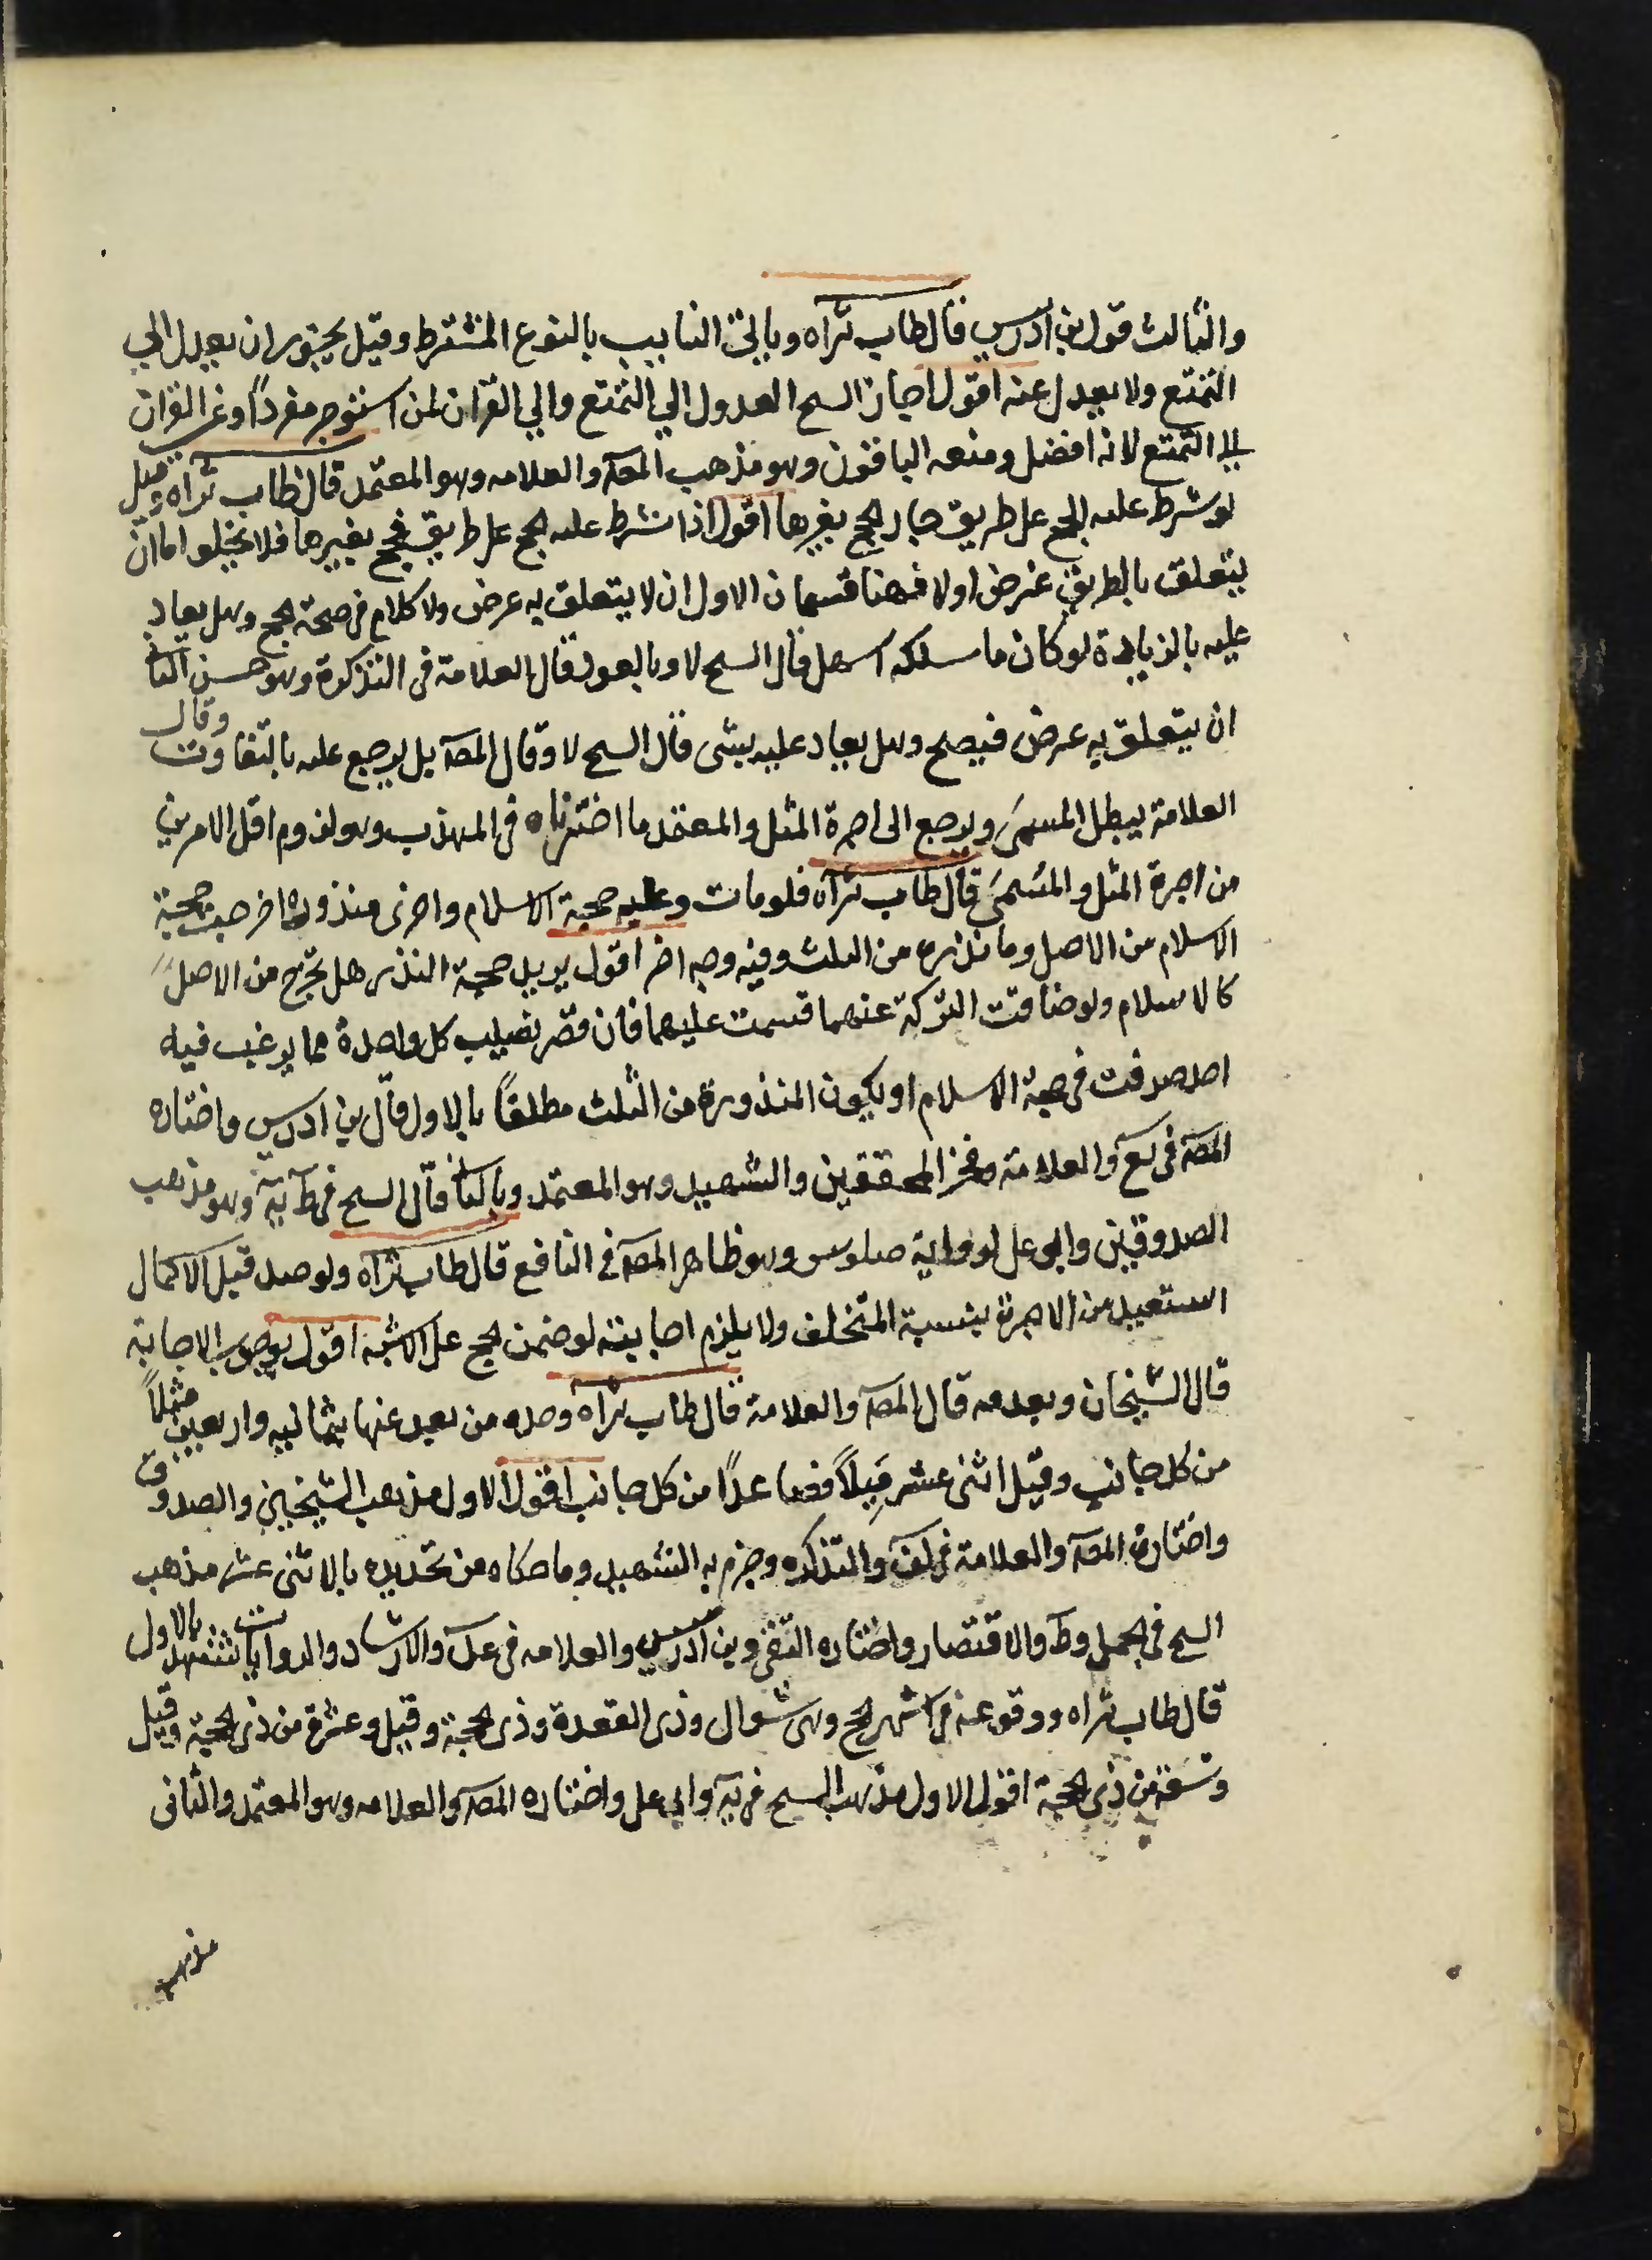 والثالث قول بن ادريس قال طاب ثراه وياتى النايب بالنوع المشترط وقيل يجوز ان يعدل الي
التمتع ولا يعدل عنه اقول اجاز الشيخ العدول الي التمتع والي القران لمن استوجر مفرداً وعن القران
التمتع لانه افضل ومنعه الباقون وهو مذهب المصآ والعلامه وهو المعتمد قال طاب ثراه وقيل
لو شرط عليه الحج على طريق جاز الحج بغيرها اقول اذا شرط عليه الحج على طريق فحج بغيرها فلا يخلو اما ان
يتعلق بالطريق غرض اولا فهنا قسمان الاول ان لا يتعلق به غرض ولا كلام فى صحة الحج وهل يعاد
عليه بالزيادة لو كان ما سلكه اسهل قال الشيخ لا وبالعود قال العلامة فى التذكرة وهو حسن الثا
ان يتعلق به غرض فيصح وهل يعاد عليه بشى قال الشيخ لا وقال المصآ بل يرجع عليه بالتفاوت وقال
العلامة يبطل المسمى ويرجع الى اجرة المثل والمعتمد ما اخترناه فى المهذب وهو لزوم اقل الامرين
من اجرة المثل والمسمى قال طاب ثراه فلو مات وعليه حجة الاسلام واخرى منذورة اخرجت حجة
الاسلام من الاصل وما نذره من الثلث وفيه وجه اخر اقول يريد حجة النذر هل تخرج من الاصل
كالاسلام ولو ضاقت التركة عنهما قسمت عليهما فان قصر نصيب كل واحدة مما يرغب فيه
احد صرفت فى حجة الاسلام او يكون المنذورة من الثلث مطلقاً بالاول قال بن ادريس واختاره
المصآ فى يع والعلامة وفخر المحققين والشهيد وهو المعتمد وبالثا قال الشيخ فى ط ية وهو مذهب
الصدوقين وابى على لرواية وهو ظاهر المصآ فى النافع قال طاب ثراه ولو صد قبل الاكمال
استعيد من الاجرة بنسبة المتخلف ولا يلزم اجابته لو ضمن الحج على الاشبه اقول بوجوب الاجابة
قال الشيخان وبعدمه قال المصآ والعلامة قال طاب ثراه وحده من بعد عنها بثمانيه واربعين ميلاً
من كل جانب وقيل اثنى عشر ميلاً فصاعداً من كل جانب اقول الاول مذهب الشيخين والصدوق
واختاره المصآ والعلامة فى لف والتذكره وجزم به الشهيد وما حكاه من تحديده بالاثنى عشر مذهب
الشيخ فى الجمل وط والاقتصار واختاره التقى وبن ادريس والعلامه فى عد والارشاد والروايات تشهد بالاول
قال طاب ثراه ووقوعه فى اشهر الحج وهى شوال وذى القعدة وذى الحجة وقيل وعشرة من ذى الحجة وقيل
وتسعة من ذى الحجة اقول الاول مذهب الشيخ فى ية وابى على واختاره المصآ والعلامه وهو المعتمد والثانى
مذهب